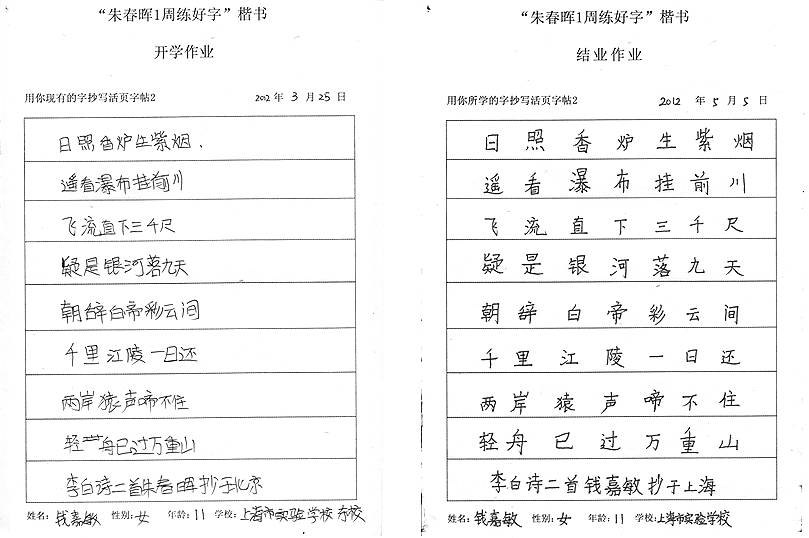 “朱春晖1周练好字”楷书
开学作业
用你现有的字抄写活页字帖2 2012年 3 月 25 日
日照香炉生紫烟.
遥看瀑布挂前川
飞流直下三千尺
疑是银河落九天
朝辞白帝彩云间
千里江陵一日还
两岸猿声啼不住
轻舟已过万重山
李白诗二首朱春晖抄于北京
姓名：钱嘉敏 性别：女 年龄：11 学校：上海市实验学校东校
“朱春晖1周练好字”楷书
结业作业
用你所学的字抄写活页字帖2 2012 年 5 月 5 日
日照香炉生紫烟
遥看瀑布挂前川
飞流直下三千尺
疑是银河落九天
朝辞白帝彩云间
千里江陵一日还
两岸猿声啼不住
轻舟已过万重山
李白诗二首钱嘉敏抄于上海
姓名：钱嘉敏 性别：女 年龄：11 学校：上海市实验学校